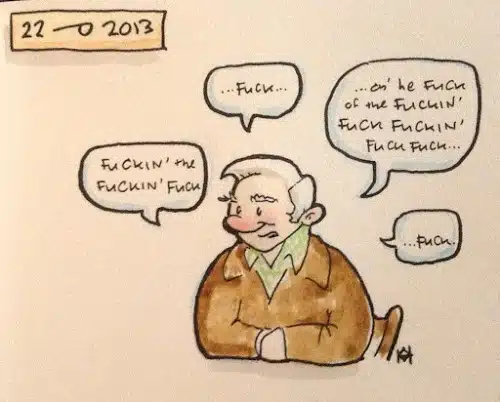 22 —o 2013
...FUCK...
...an' he FUCK
of the FUCKIN'
FUCK FUCKIN'
FUCK FUCK...
FUCKIN' the
FUCKIN' FUCK
...FUCK.